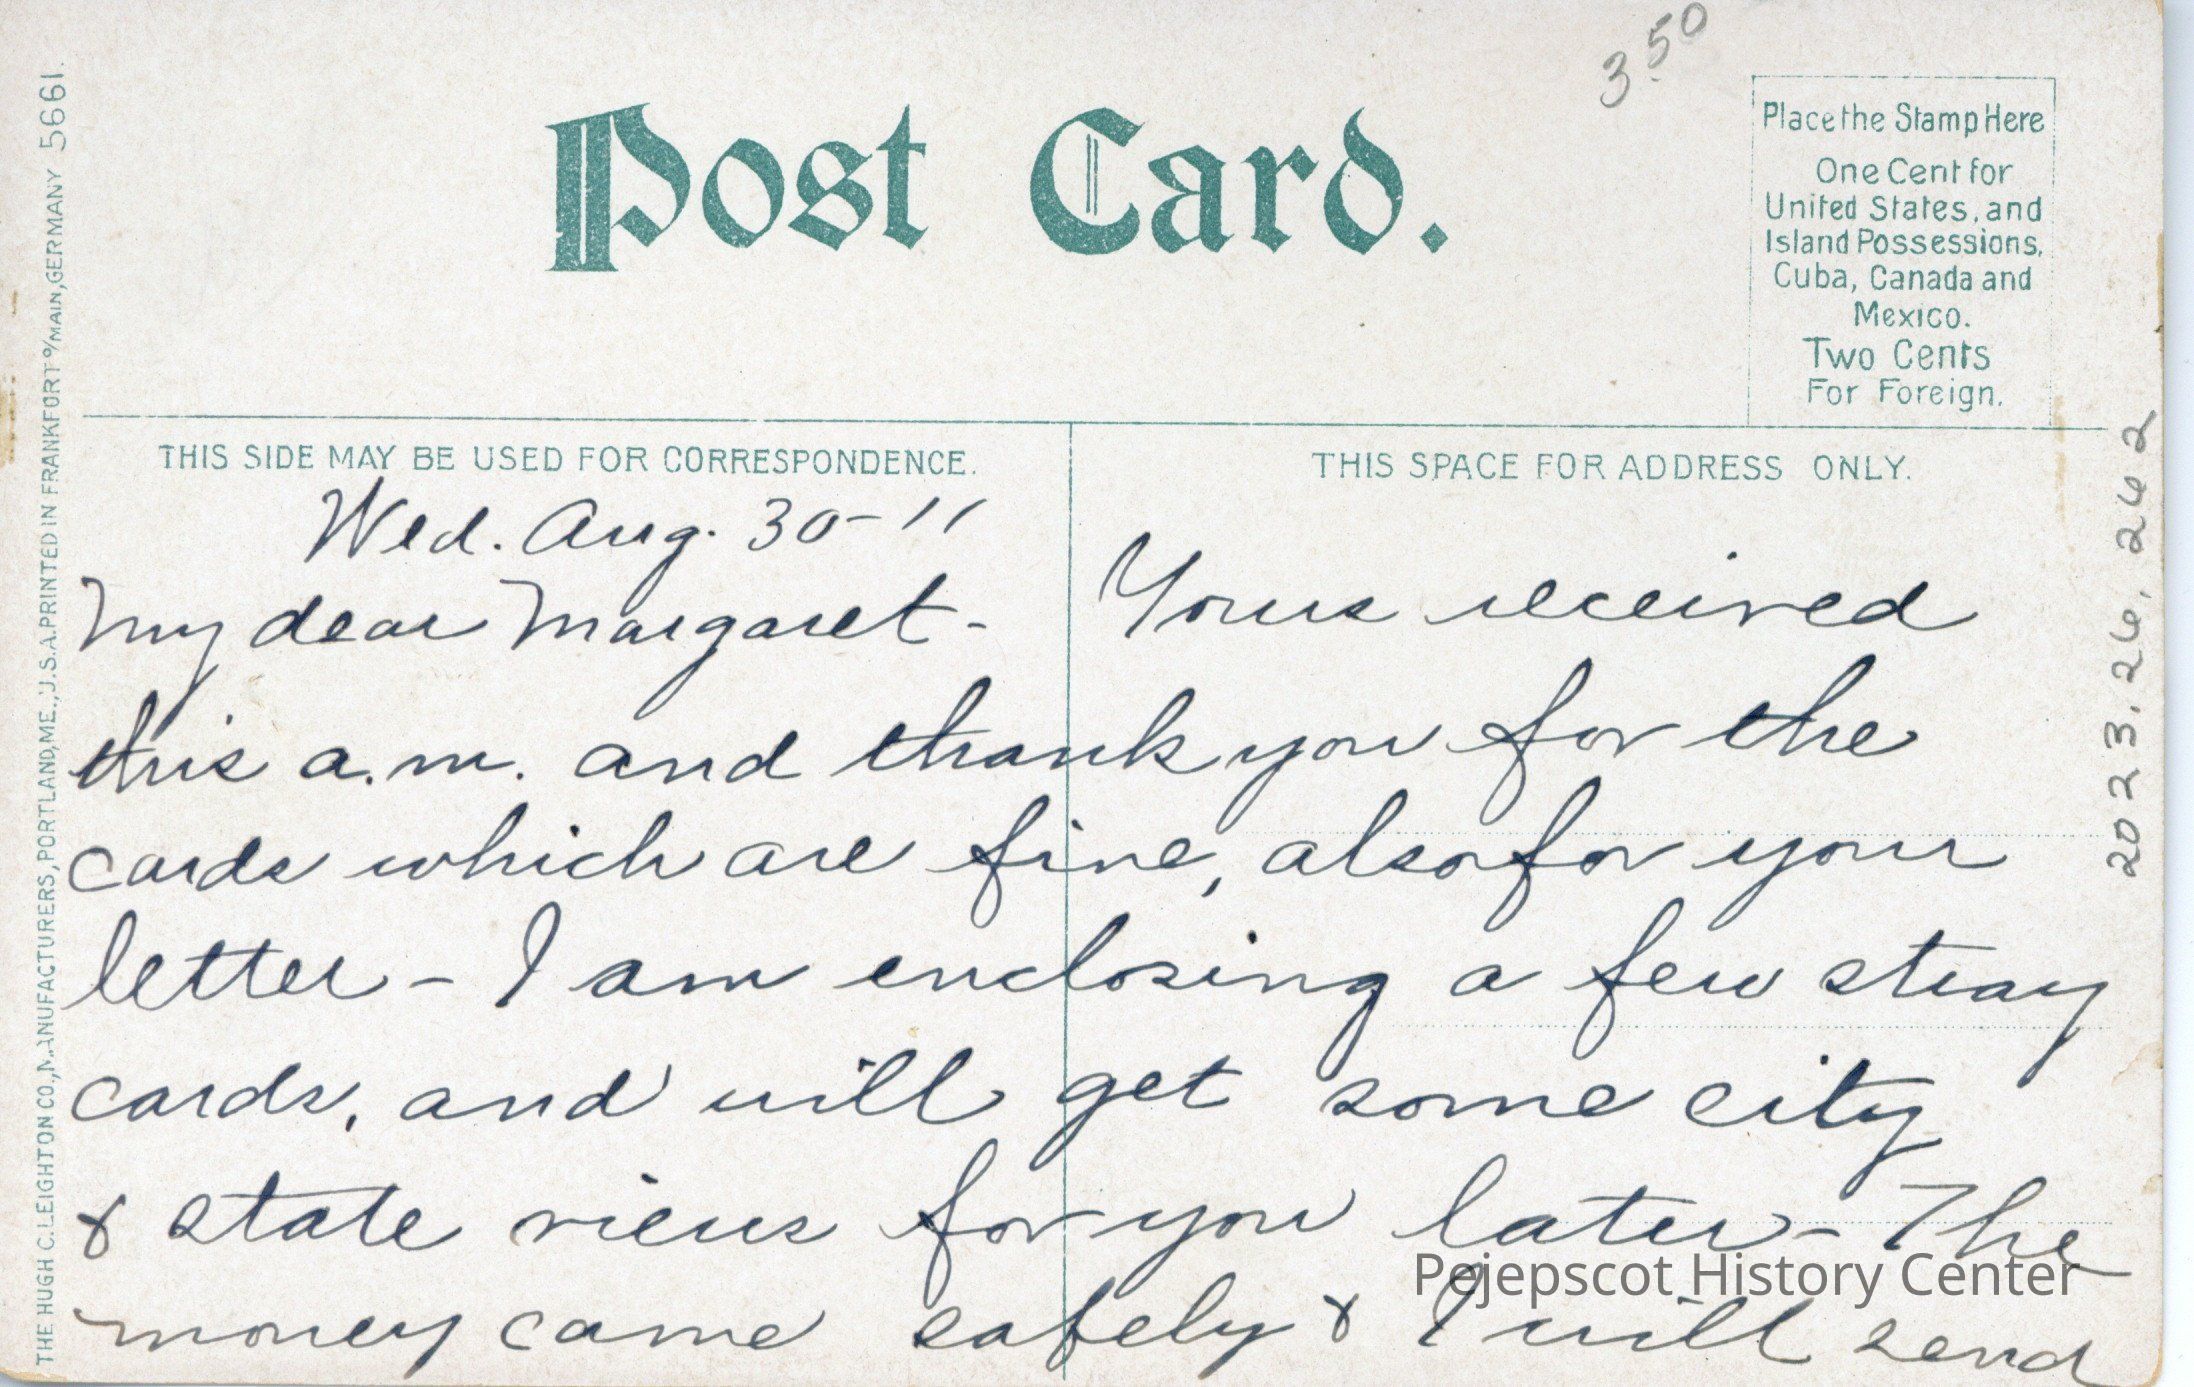 3.50
Post Card.
Place the Stamp Here
One Cent for
United States, and
Island Possessions,
Cuba, Canada and
Mexico.
Two Cents
For Foreign.
THIS SIDE MAY BE USED FOR CORRESPONDENCE.
THIS SPACE FOR ADDRESS ONLY.
Wed. Aug. 30-11
My dear Margaret- Yours received
this a.m. and thank you for the
cards which are fine, also for your
letter - I am enclosing a few stray
cards, and will get some city
& state views for you later - The
money came safely & I will send
THE HUGH C. LEIGHTON CO., MANUFACTURERS, PORTLAND, ME., U.S.A. PRINTED IN FRANKFORT o/MAIN, GERMANY 5661.
2023.26.262
Pejepscot History Center